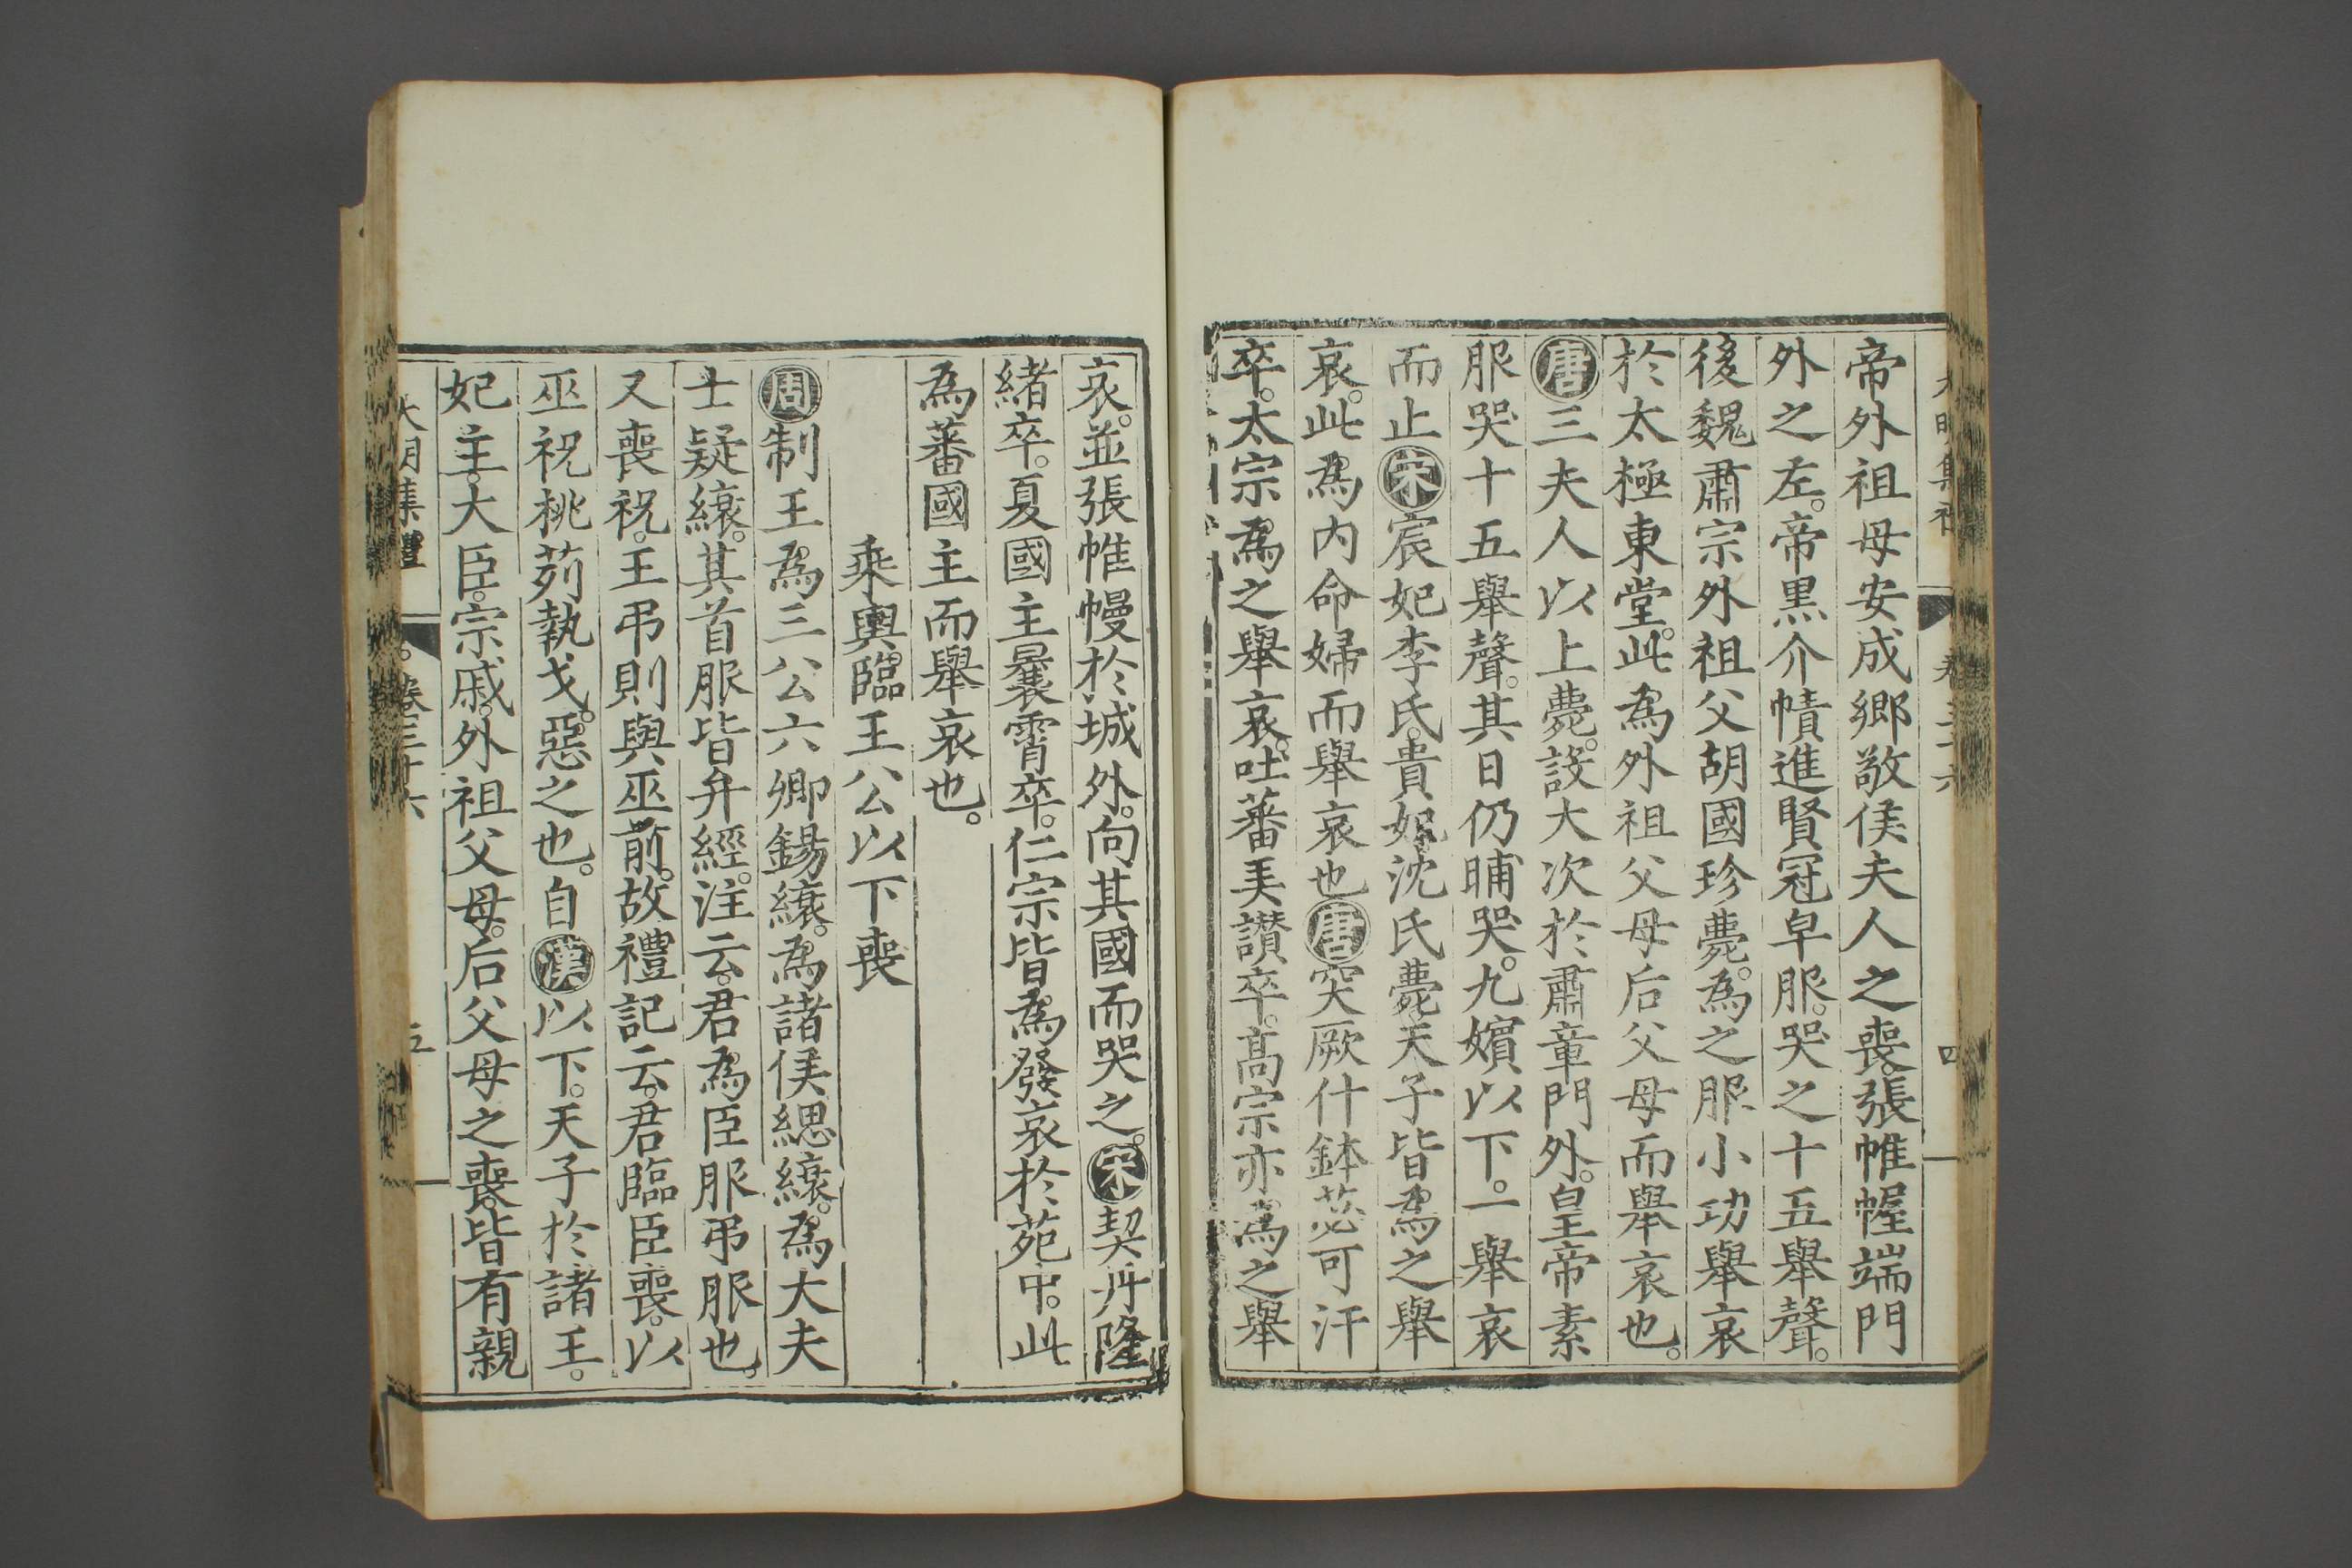 帝外祖母安成鄉敬侯夫人之喪。張帷幄端門
外之左。帝黑介幘進賢冠皁服。哭之十五舉聲。
後魏肅宗外祖父胡國珍薨。為之服小功舉哀
於太極東堂。此為外祖父母后父母而舉哀也。
唐三夫人以上薨。設大次於肅章門外。皇帝素
服哭十五舉聲。其日仍晡哭。九嬪以下。一舉哀
而止宋宸妃李氏。貴妃沈氏薨天子皆為之舉
哀。此為內命婦而舉哀也唐突厥什鉢苾可汗
卒。太宗為之舉哀。吐蕃美讃卒。高宗亦為之舉
大明集禮 卷三十六 四
哀。並張帷幔於城外。向其國而哭之。宋契丹隆
緒卒。夏國主曩霄卒。仁宗皆為發哀於苑中。此
為蕃國主而舉哀也。
乘輿臨王公以下喪
周制王為三公六卿錫縗。為諸侯緦縗。為大夫
士疑縗。其首服皆弁絰。注云。君為臣服弔服也。
又喪祝。王弔則與巫前。故禮記云。君臨臣喪。以
巫祝桃茢執戈。惡之也。自漢以下。天子於諸王。
妃主。大臣。宗戚。外祖父母。后父母之喪。皆有親
大明集禮 卷三十六 五